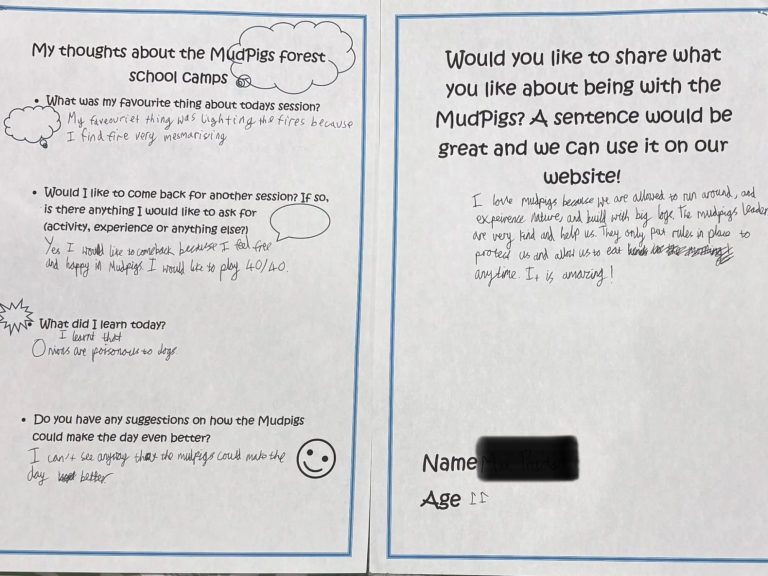 My thoughts about the MudPigs forest
school camps
• What was my favourite thing about todays session?
My faveouriet thing was lighting the fires because
I find fire very mesmarising
• Would I like to come back for another session? If so,
is there anything I would like to ask for
(activity, experience or anything else?)
Yes I would like to comeback because I feel free
and happy in Mudpigs. I would like to play 40/40.
• What did I learn today?
I learnt that
Onions are poisonous to dogs.
• Do you have any suggestions on how the Mudpigs
could make the day even better?
I can't see anyway that the mudpigs could make the
day better
Would you like to share what
you like about being with the
MudPigs? A sentence would be
great and we can use it on our
website!
I love mudpigs because we are allowed to run around, and
expeirence nature, and build with big logs. The mudpigs leader
are very kind and help us. They only put rules in place to
protect us and allow us to eat
anytime. It is amazing!
Name
Age 11